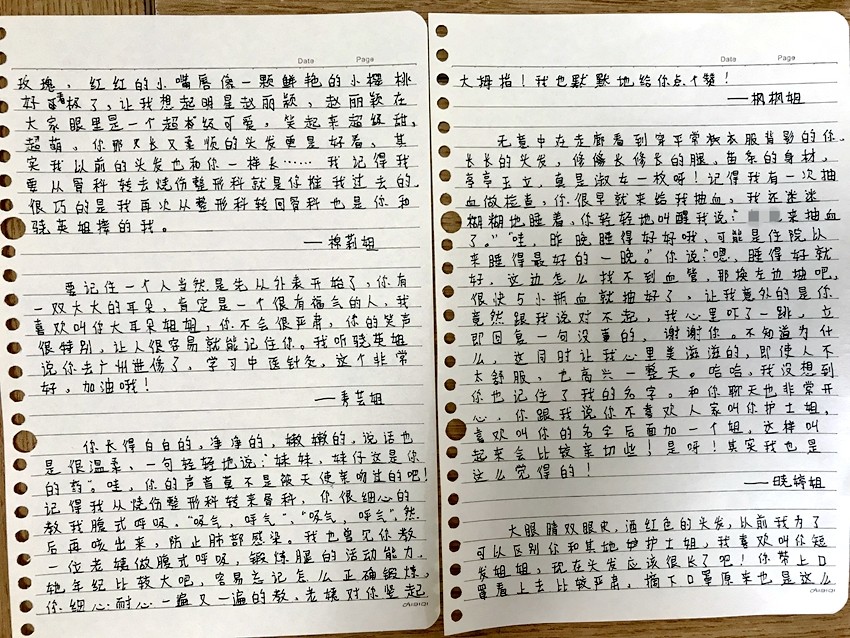 Date Page
玫瑰，红红的小嘴唇像一颗鲜艳的小樱桃
好看极了，让我想起明星赵丽颖，赵丽颖在
大家眼里是一个超级可爱，笑起来超级甜，
超萌。你那又长又柔顺的头发更是好看，其
实我以前的头发也和你一样长……我记得我
要从骨科转去烧伤整形科就是你推我过去的，
很巧的是我再次从整形科转回骨科也是你和
骁英姐接的我。
——棉莉姐
要记住一个人当然是先从外表开始了，你有
一双大大的耳朵，肯定是一个很有福气的人，我
喜欢叫你大耳朵姐姐，你不会很严肃，你的笑声
很特别，让人很容易就能记住你。我听骁英姐
说你去广州进修了，学习中医针灸，这个非常
好。加油哦！
——秀芸姐
你长得白白的，净净的，嫩嫩的，说话也
是很温柔、一句轻轻地说：“妹妹，妹仔这是你
的药”。哇，你的声音真不是被天使亲吻过的吧！
记得我从烧伤整形科转来骨科，你很细心的
教我腹式呼吸，“吸气，呼气”，“吸气，呼气”，然
后再咳出来，防止肺部感染。我也曾见你教
一位老姨做腹式呼吸，锻炼腿的活动能力，
她年纪比较大吧，容易忘记怎么正确锻炼，
你细心耐心一遍又一遍的教，老姨对你竖起
Date Page
大拇指！我也默默地给你点个赞！
——枫枫姐
无意中在走廊看到穿平常衣服背影的你，
长长的头发，修修长修长的腿，苗条的身材，
亭亭玉立，真是淑女一枚呀！记得我有一次抽
血做检查，你很早就来给我抽血，我还迷迷
糊糊地睡着，你轻轻地叫醒我说：“ 来抽血
了。”“哇，昨晚睡得好好哦，可能是住院以
来睡得最好的一晚。”你说：“嗯，睡得好就
好，这边怎么找不到血管，那换左边抽吧。
很快5小瓶血就抽好了，让我意外的是你
竟然跟我说对不起，我心里吓了一跳，立
即回复一句没事的，谢谢你。不知道为什
么，这同时让我心里美滋滋的，即使人不
太舒服，也高兴一整天。哈哈，我没想到
你也记住了我的名字。和你聊天也非常开
心，你跟我说你不喜欢人家叫你护士姐，
喜欢叫你的名字后面加一个姐，这样叫
起来会比较亲切些！是呀！其实我也是
这么觉得的！
——晓婷姐
大眼睛双眼皮，酒红色的头发，以前我为了
可以区别你和其她护士姐，我喜欢叫你短
发姐姐，现在头发应该很长了吧！你带上口
罩看上去比较严肃，摘下口罩原来也是这么